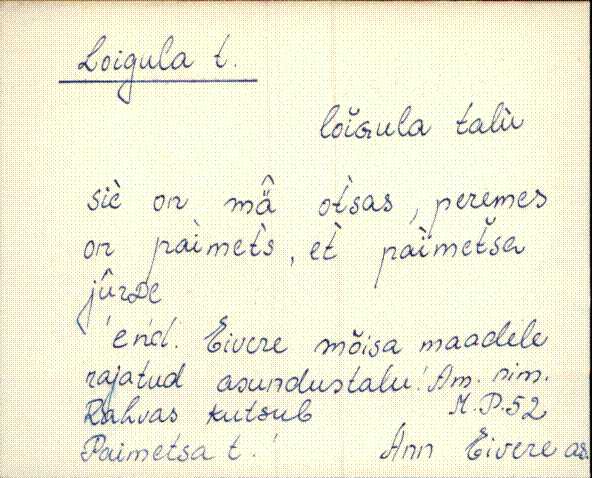 Loigula t.
loĭGula talù
siè on mâ̈ otsas, peremes
on paìmet̀s, et̀ päìmetšᴀ
jûrDe
'end. Eivere mõisa maadele
rajatud asundustalu! Am. nim.
Rahvas kutsub M.P.52
Paimetsa t.' Ann Eivere as.